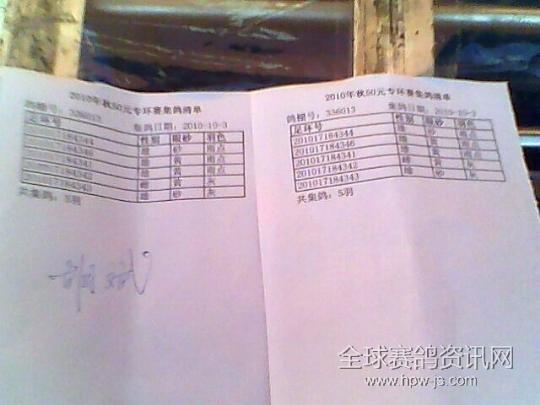 2010年秋50元专环赛集鸽清单
鸽棚号：336013 集鸽日期：2010-10-3
足环号 性别 眼砂 羽色
201017184344 雄 砂 雨点
201017184346 雄 砂 雨点
201017184341 雄 黄 雨点
201017184342 雌 黄 灰
201017184343 雄 砂 灰
共集鸽：5羽
2010年秋50元专环赛集鸽清单
鸽棚号：336013 集鸽日期：2010-10-3
足环号 性别 眼砂 羽色
201017184344 雄 砂 雨点
201017184346 雄 砂 雨点
201017184341 雄 黄 雨点
201017184342 雌 黄 灰
201017184343 雄 砂 灰
共集鸽：5羽
全球赛鸽资讯网
www.hpw-js.com